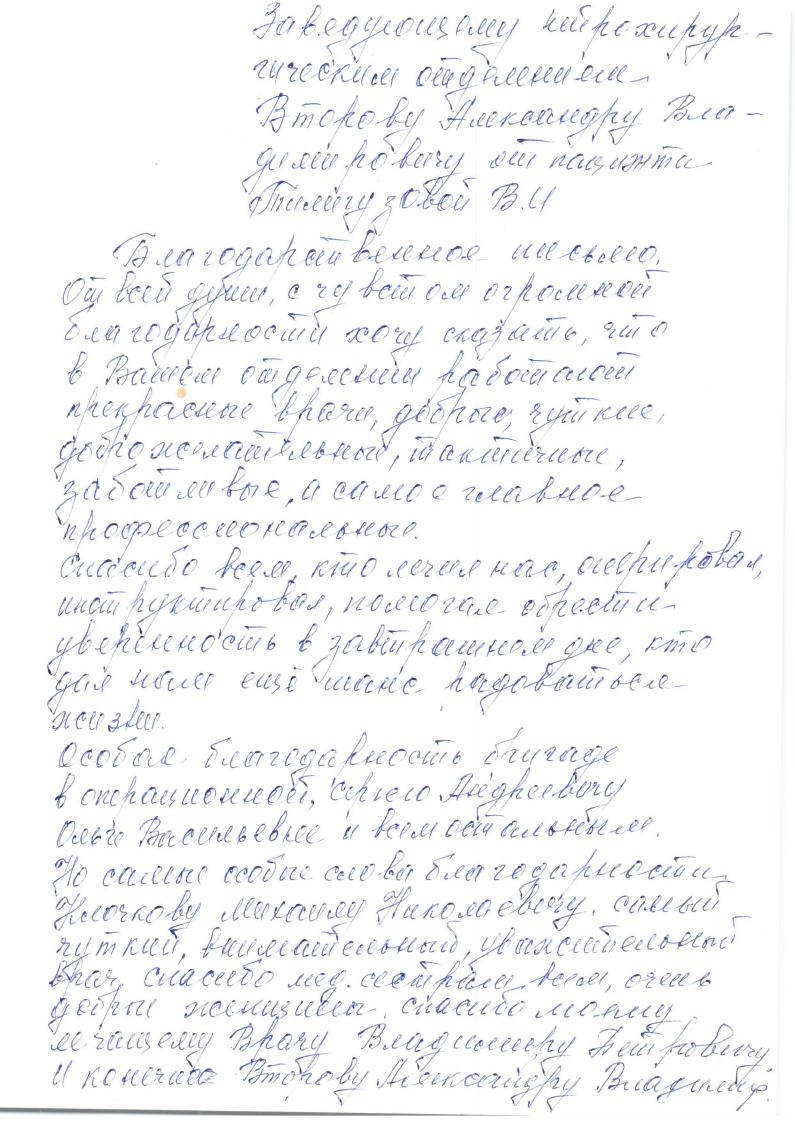 Заведующему нейрохирур-
гическим отделением
Второву Александру Вла-
димировичу от пациента
Тилигузовой В.И
Благодарственное письмо.
От всей души, с чувством огромной
благодарности хочу сказать, что
в Вашем отделении работают
прекрасные врачи, добрые, чуткие,
доброжелательные, тактичные,
заботливые, а самое главное
профессиональные.
Спасибо всем, кто лечил нас, оперировал,
инструктировал, помогал обрести
уверенность в завтрашнем дне, кто
дал нам ещё шанс радоваться
жизни.
Особая благодарность бригаде
в операционной, Андреевичу
Ольге Васильевне и всем остальным.
Но самые особые слова благодарности
Клочкову Михаилу Николаевичу. самый
чуткий, внимательный, уважительный
врач, спасибо мед. сестрам всем, очень
добрые женщины. спасибо моему
лечащему Врачу Владимиру Петровичу
И конечно Второву Александру Владимир.